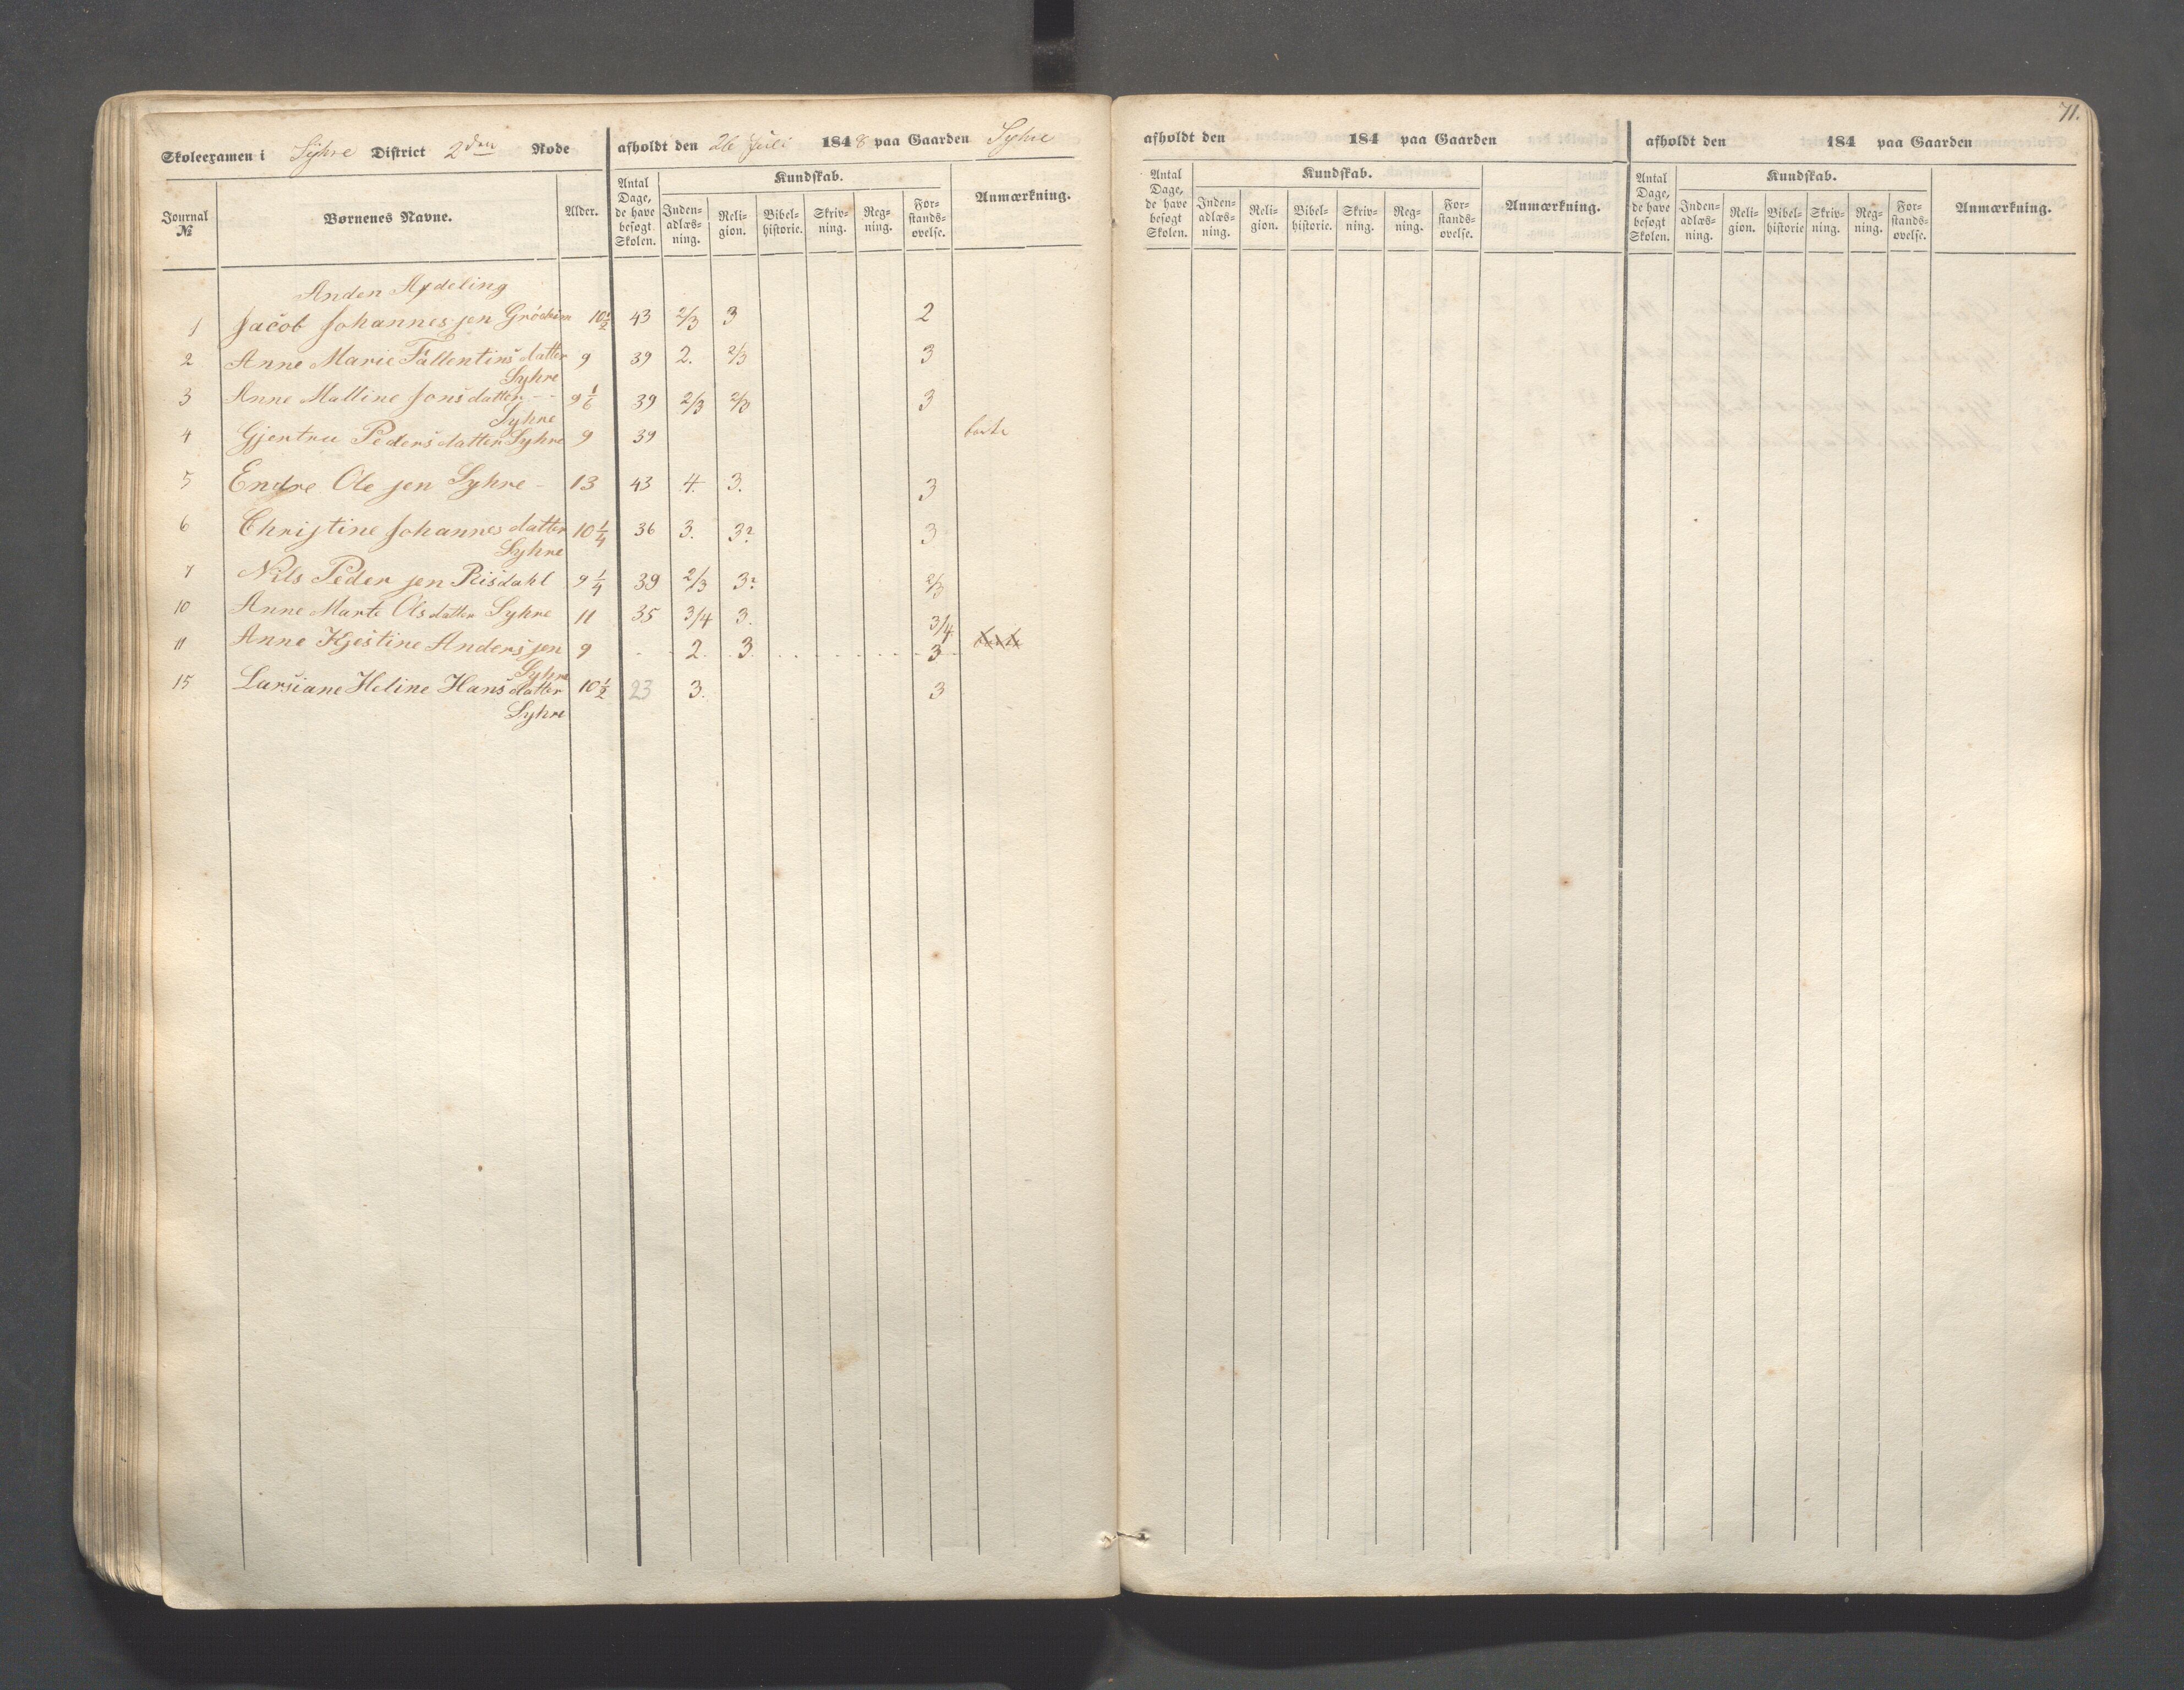 71.
Skoleexamen i Syhre District 2den Rode afholdt den 26 Juli 1848 paa Gaarden Syhre
Journal № Børnenes Navne. Alder. Antal Dage, de have besøgt Skolen. Kundskab. Anmærkning.
Inden-adlæs-ning. Reli-gion. Bibel-historie. Skriv-ning. Reg-ning. For-stands-øvelse.
Anden Afdeling
1 Jacob Johannes sen 10½ 43 2/3 3 2
2 Anne Marie Fallentins datter 9 39 2. 2/3 3
Syhre
3 Anne Malline Jons datter - - 9 1/6 39 2/3 2/3 3
Syhre
4 Gjertru Peders datter Syhre 9 39 borte
5 Endre Ole sen Syhre - 13 43 4. 3. 3
6 Christine Johannes datter 10¼ 36 3. 3? 3
Syhre
7 Nils Peder sen Risdahl 9¼ 39 2/3 3? 2/3
10 Anne Marte Ols datter Syhre 11 35 3/4 3. 3/4
11 Anne Kjestine Anders sen 9 2. 3. 3
Syhre
15 Larsiane Heline Hans datter 10½ 23 3. 3
Syhre
afholdt den 184 paa Gaarden
Antal Dage, de have besøgt Skolen. Kundskab. Anmærkning.
Inden-adlæs-ning. Reli-gion. Bibel-historie. Skriv-ning. Reg-ning. For-stands-øvelse.
afholdt den 184 paa Gaarden
Antal Dage, de have besøgt Skolen. Kundskab. Anmærkning.
Inden-adlæs-ning. Reli-gion. Bibel-historie Skriv-ning. Reg-ning. For-stands-øvelse.